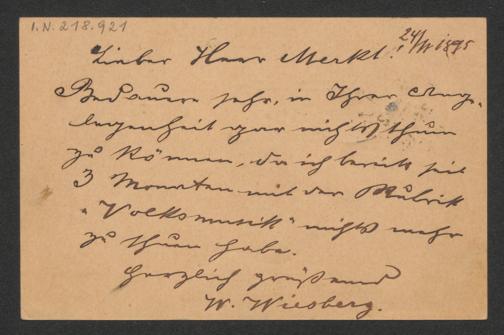 I.N. 218.921
24/IV 1895
Lieber Herr Merkt!
Bedauere sehr, in Ihrer Ange-
legenheit gar nichts thun
zu können, da ich bereits seit
3 Monaten mit der Rubrik
"Volksmusik" nichts mehr
zu thun habe.
Herzlich grüßend
W. Wiesberg.